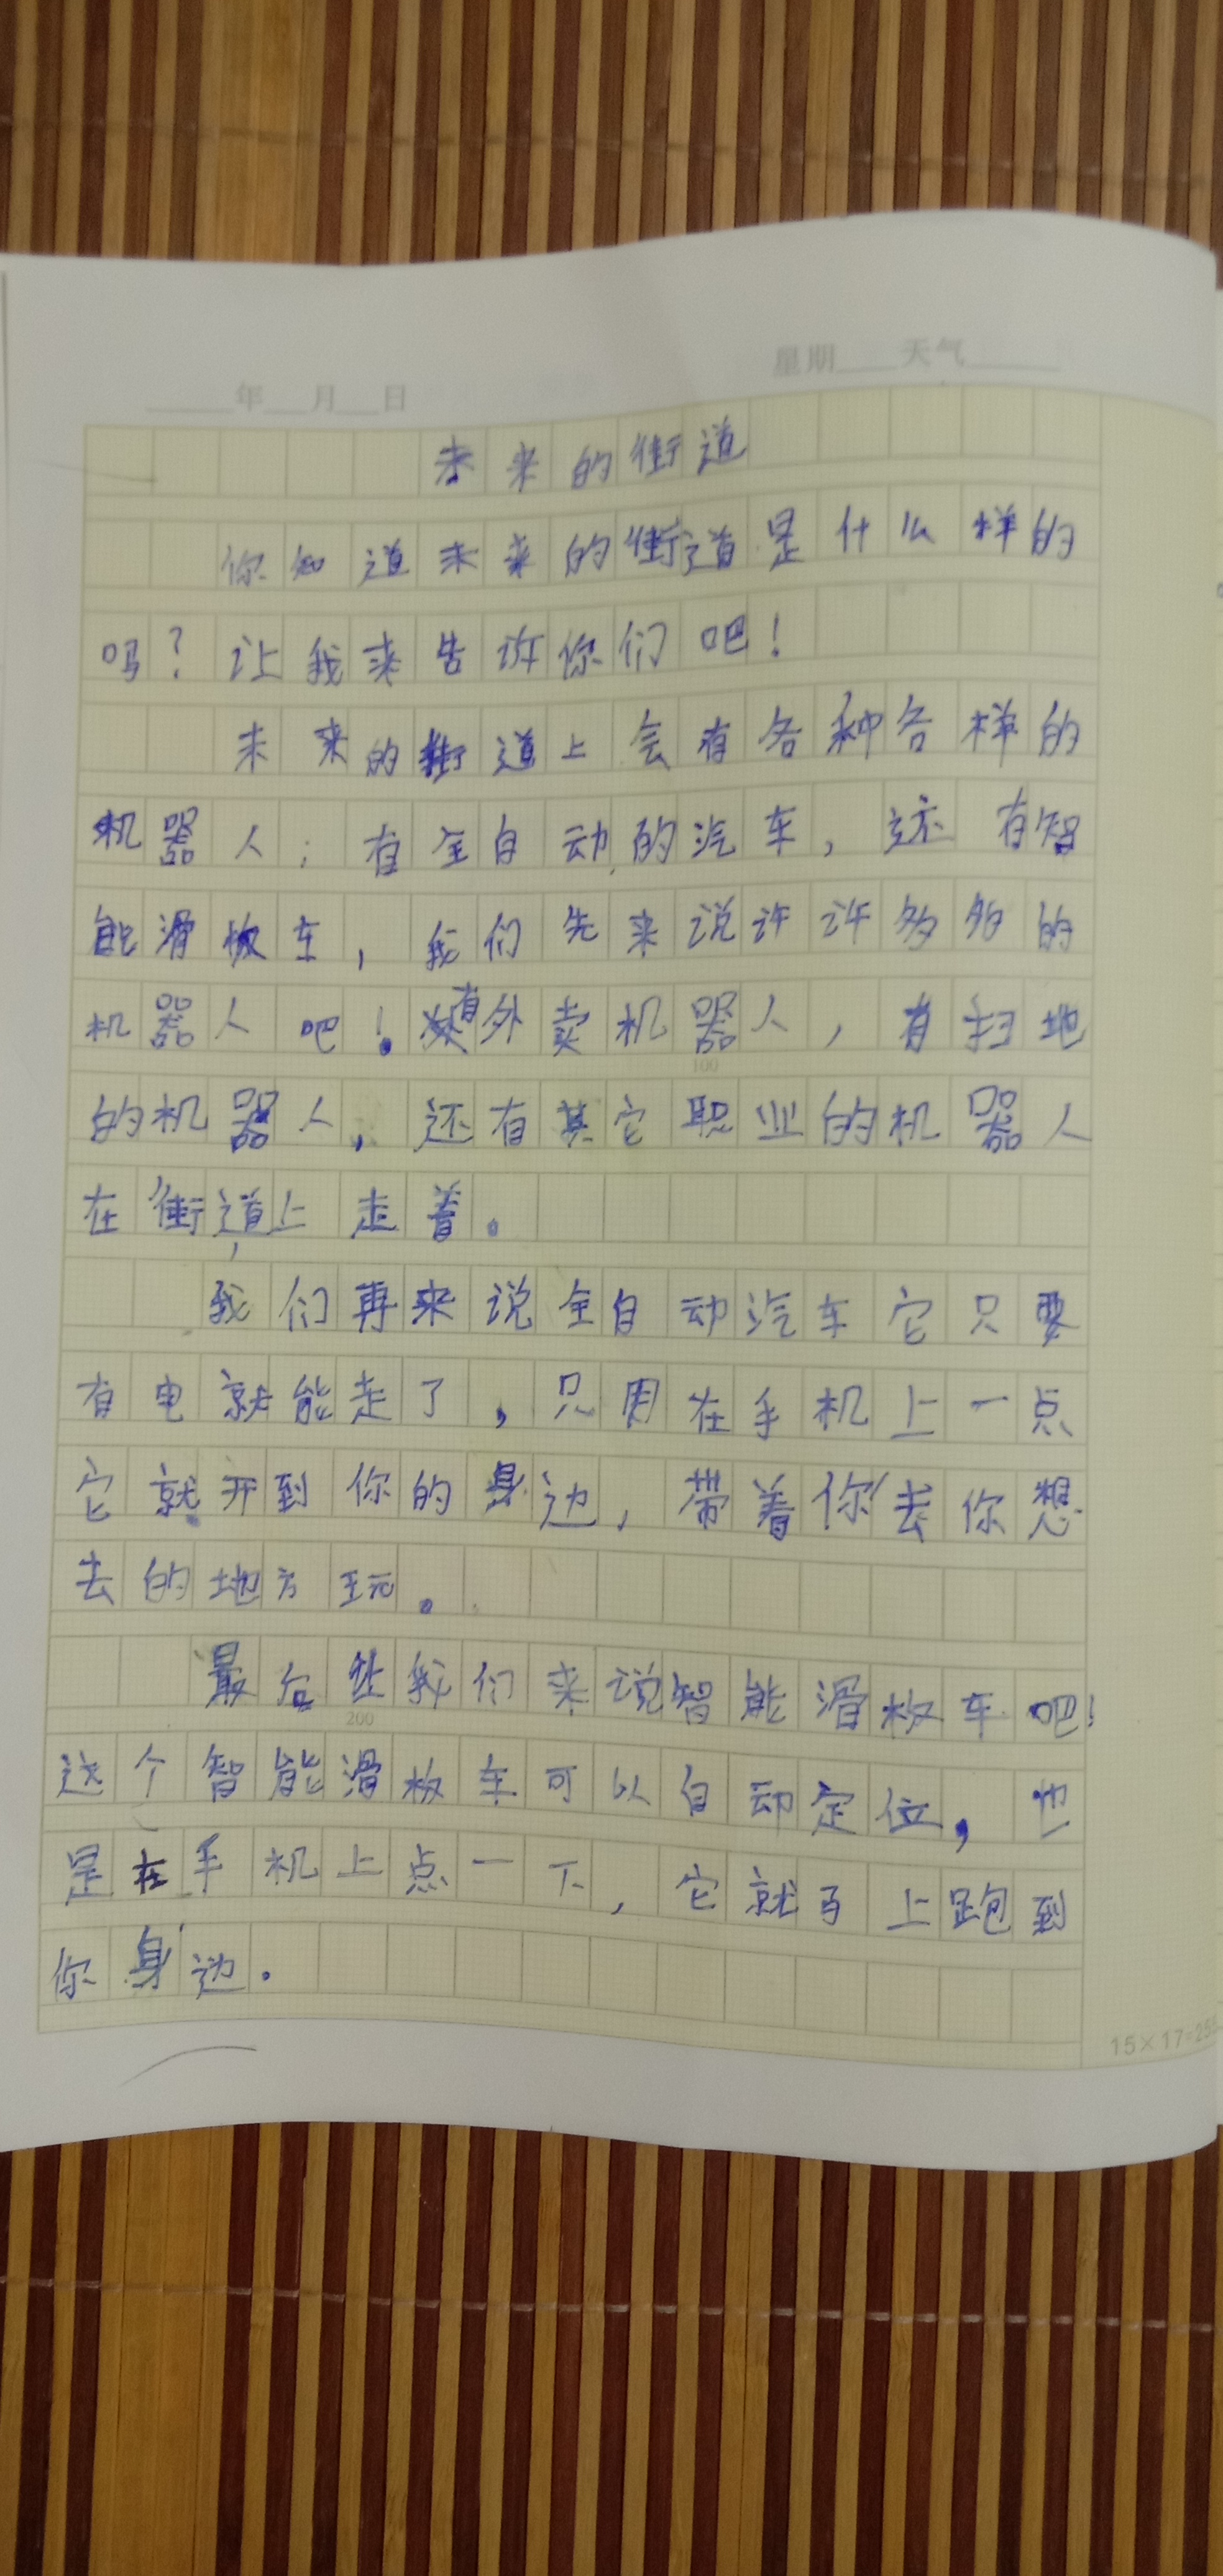 年 月 日 星期 天气
未来的街道
你知道未来的街道是什么样的
吗?让我来告诉你们吧!
未来的街道上会有各种各样的
机器人;有全自动的汽车,还有智
能滑板车,我们先来说许许多多的
机器人吧!有外卖机器人,有扫地
100
的机器人,还有其它职业的机器人
在街道上走着。
我们再来说全自动汽车它只要
有电就能走了,只用在手机上一点
它就开到你的身边,带着你去你想
去的地方玩。
最后让我们来说智能滑板车吧!
200
这个智能滑板车可以自动定位,也
是在手机上点一下,它就马上跑到
你身边。
15×17=255